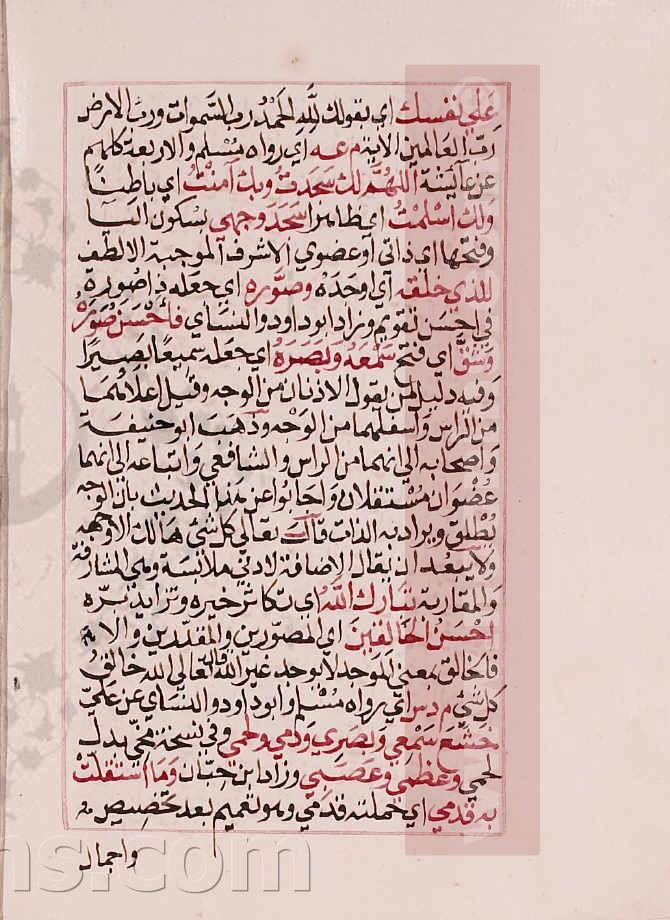 علي نفسك اي بقولك لله الحمد رب السموات ورب الارض
رب العالمين الاية م عه اي رواه مسلم والاربعة كلهم
عن عآيشة اللهم لك سجدت وبك آمنت اي باطنا
ولك اسلمت اي ظاهرا سجد وجهي بسكون اليا
وفتحها اي ذاتي او عضوي الاشرف الموجبة الالطف
للذي خلقه اي اوجده وصوره اي جعله ذا صورة
في احسن تقويم وزاد ابو داود والنساي فاحسن صوره
وشق اي فتح سمعه وبصره اي جعله سميعا بصيرا
وفيه دليل لمن يقول الاذنان من الوجه وقيل اعلاهما
من الراس واسفلهما من الوجه وذهب ابو حنيفة
واصحابه الي انهما من الراس والشافعي واتباعه الي انهما
عضوان مستقلان واجابوا عن هذا الحديث بان الوجه
يطلق ويراد به الذات قال تعالي كل شئ هالك الا وجهه
ولا يبعد ان يقال الاضافة لادني ملابسة وهي المشارفة
والمقاربة تبارك الله اي تكاثر خيره وتزايد بره
احسن الخالقين اي المصورين والمقدرين والا
فالخالق بمعني الموجد لا يوجد غير الله قال تعالي الله خالق
كل شئ م د س اي رواه مسلم وابو داود والنساي عن علي
خشع سمعي وبصري ودمي ولحمي وفي نسخة مخي بدل
لحمي وعظمي وعصبي وزاد ابن حبان وما استقلت
به قدمي اي حملته قدمي وهو تعميم بعد تخصيص
واجمال
ns.com